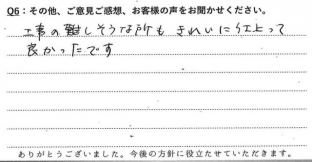 Q6：その他、ご意見ご感想、お客様の声をお聞かせください。
工事の難しそうな所も きれいに仕上って
良かったです
ありがとうございました。今後の方針に役立たせていただきます。